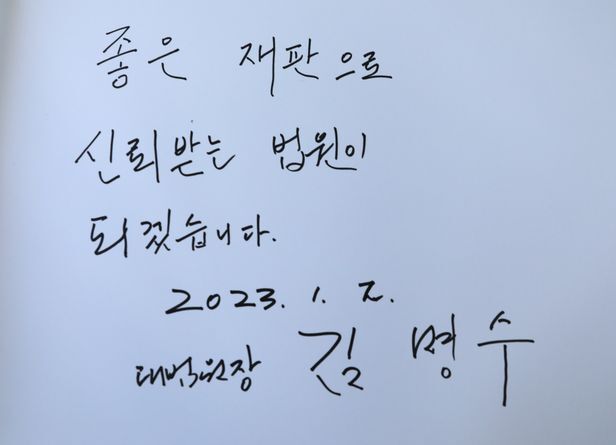 좋은 재판으로
신뢰받는 법원이
되겠습니다.
2023. 1. 2.
대법원장 김명수